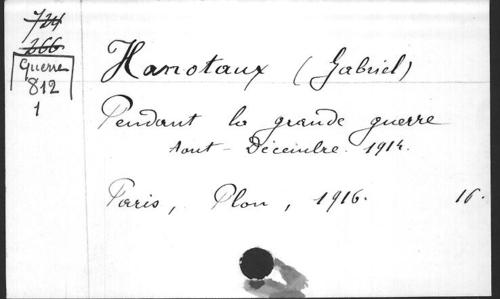 724
266
Guerre
812
1
Hanotaux (Gabriel)
Pendant la grande guerre
Aout - Décembre. 1914.
Paris, Plon, 1916. 16.